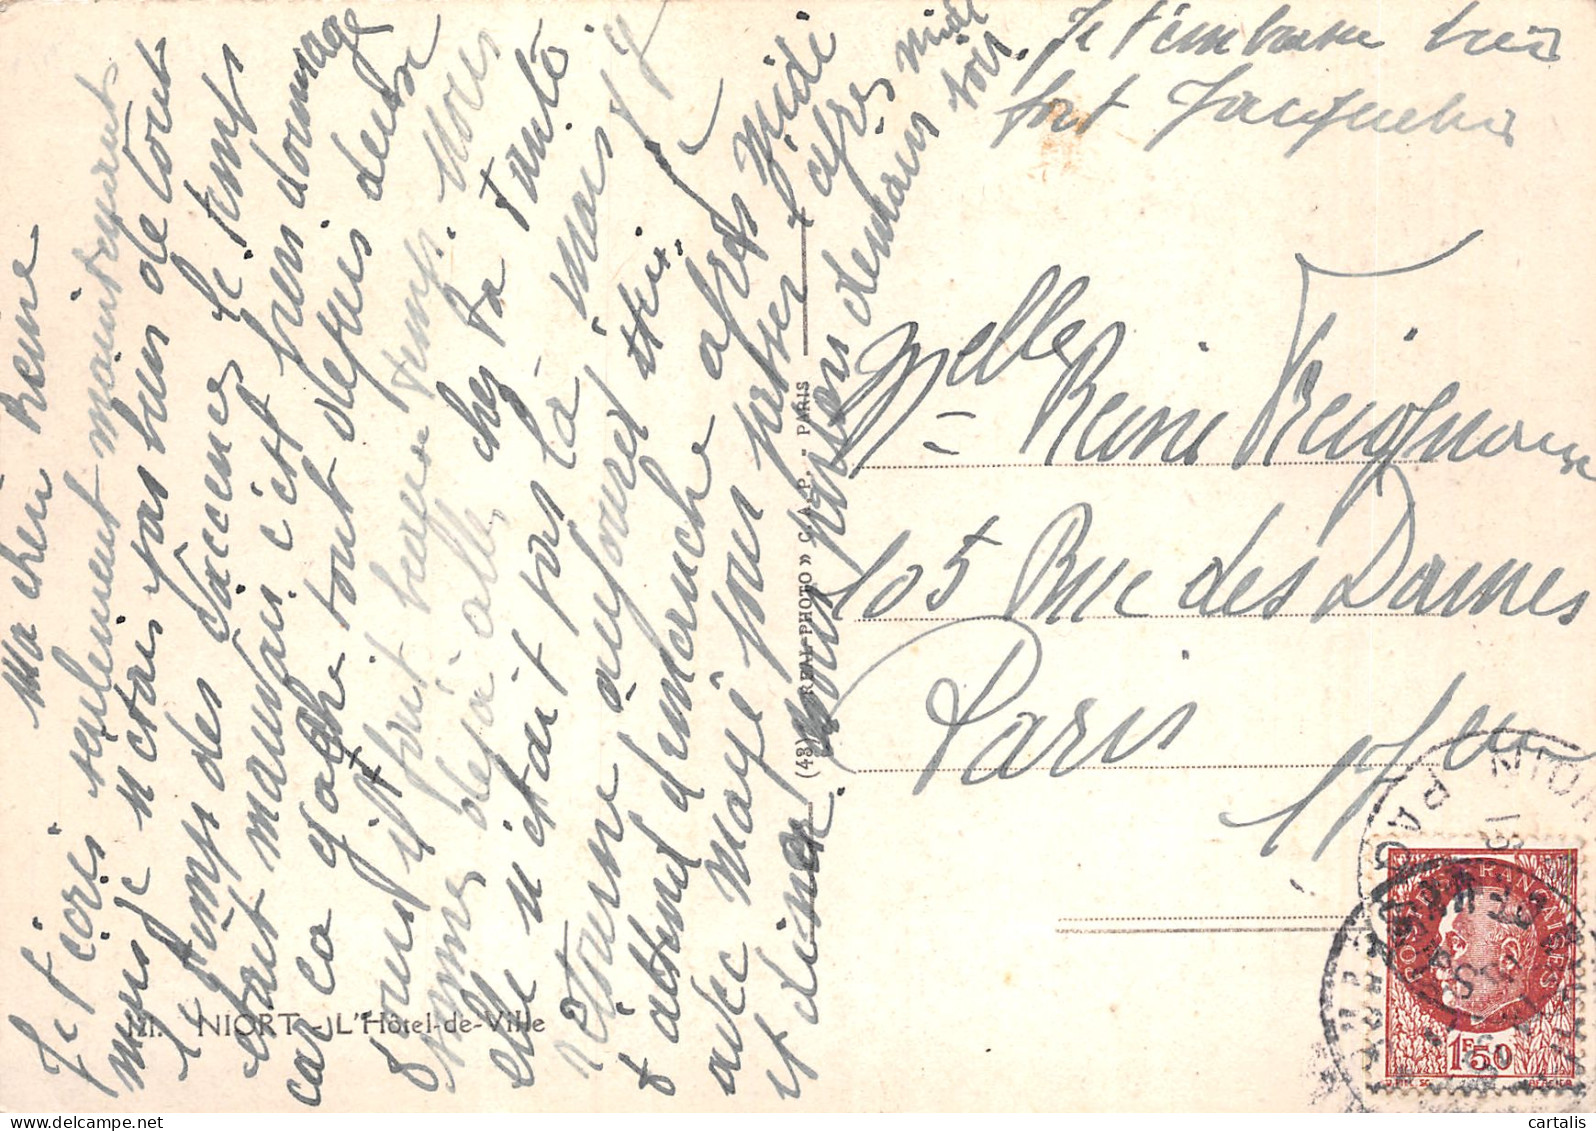 Ma chère Reine
Je t'écris seulement maintenant
mais je n'étais pas bien de tout
le temps des vacances le temps
était mauvais c'est bien dommage
car ça gâche tout depuis deux
jours il fait beau temps. Nous
sommes déjà allé chez ta tante
elle n'était pas là. mais j'y
retourne aujourd'hui.
d'abord dimanche après midi
avec maye pour passer l'après midi
et diner nous partons demain soir.
Je t'embrasse très
fort Jacqueline
Melle Reine Treignoux
105 Rue des Dames
Paris
111. NIORT - L'Hôtel-de-Ville
(43) « REAL-PHOTO » C.A.P. - PARIS
NIORT
POSTES FRANÇAISES
1F50
cartalis